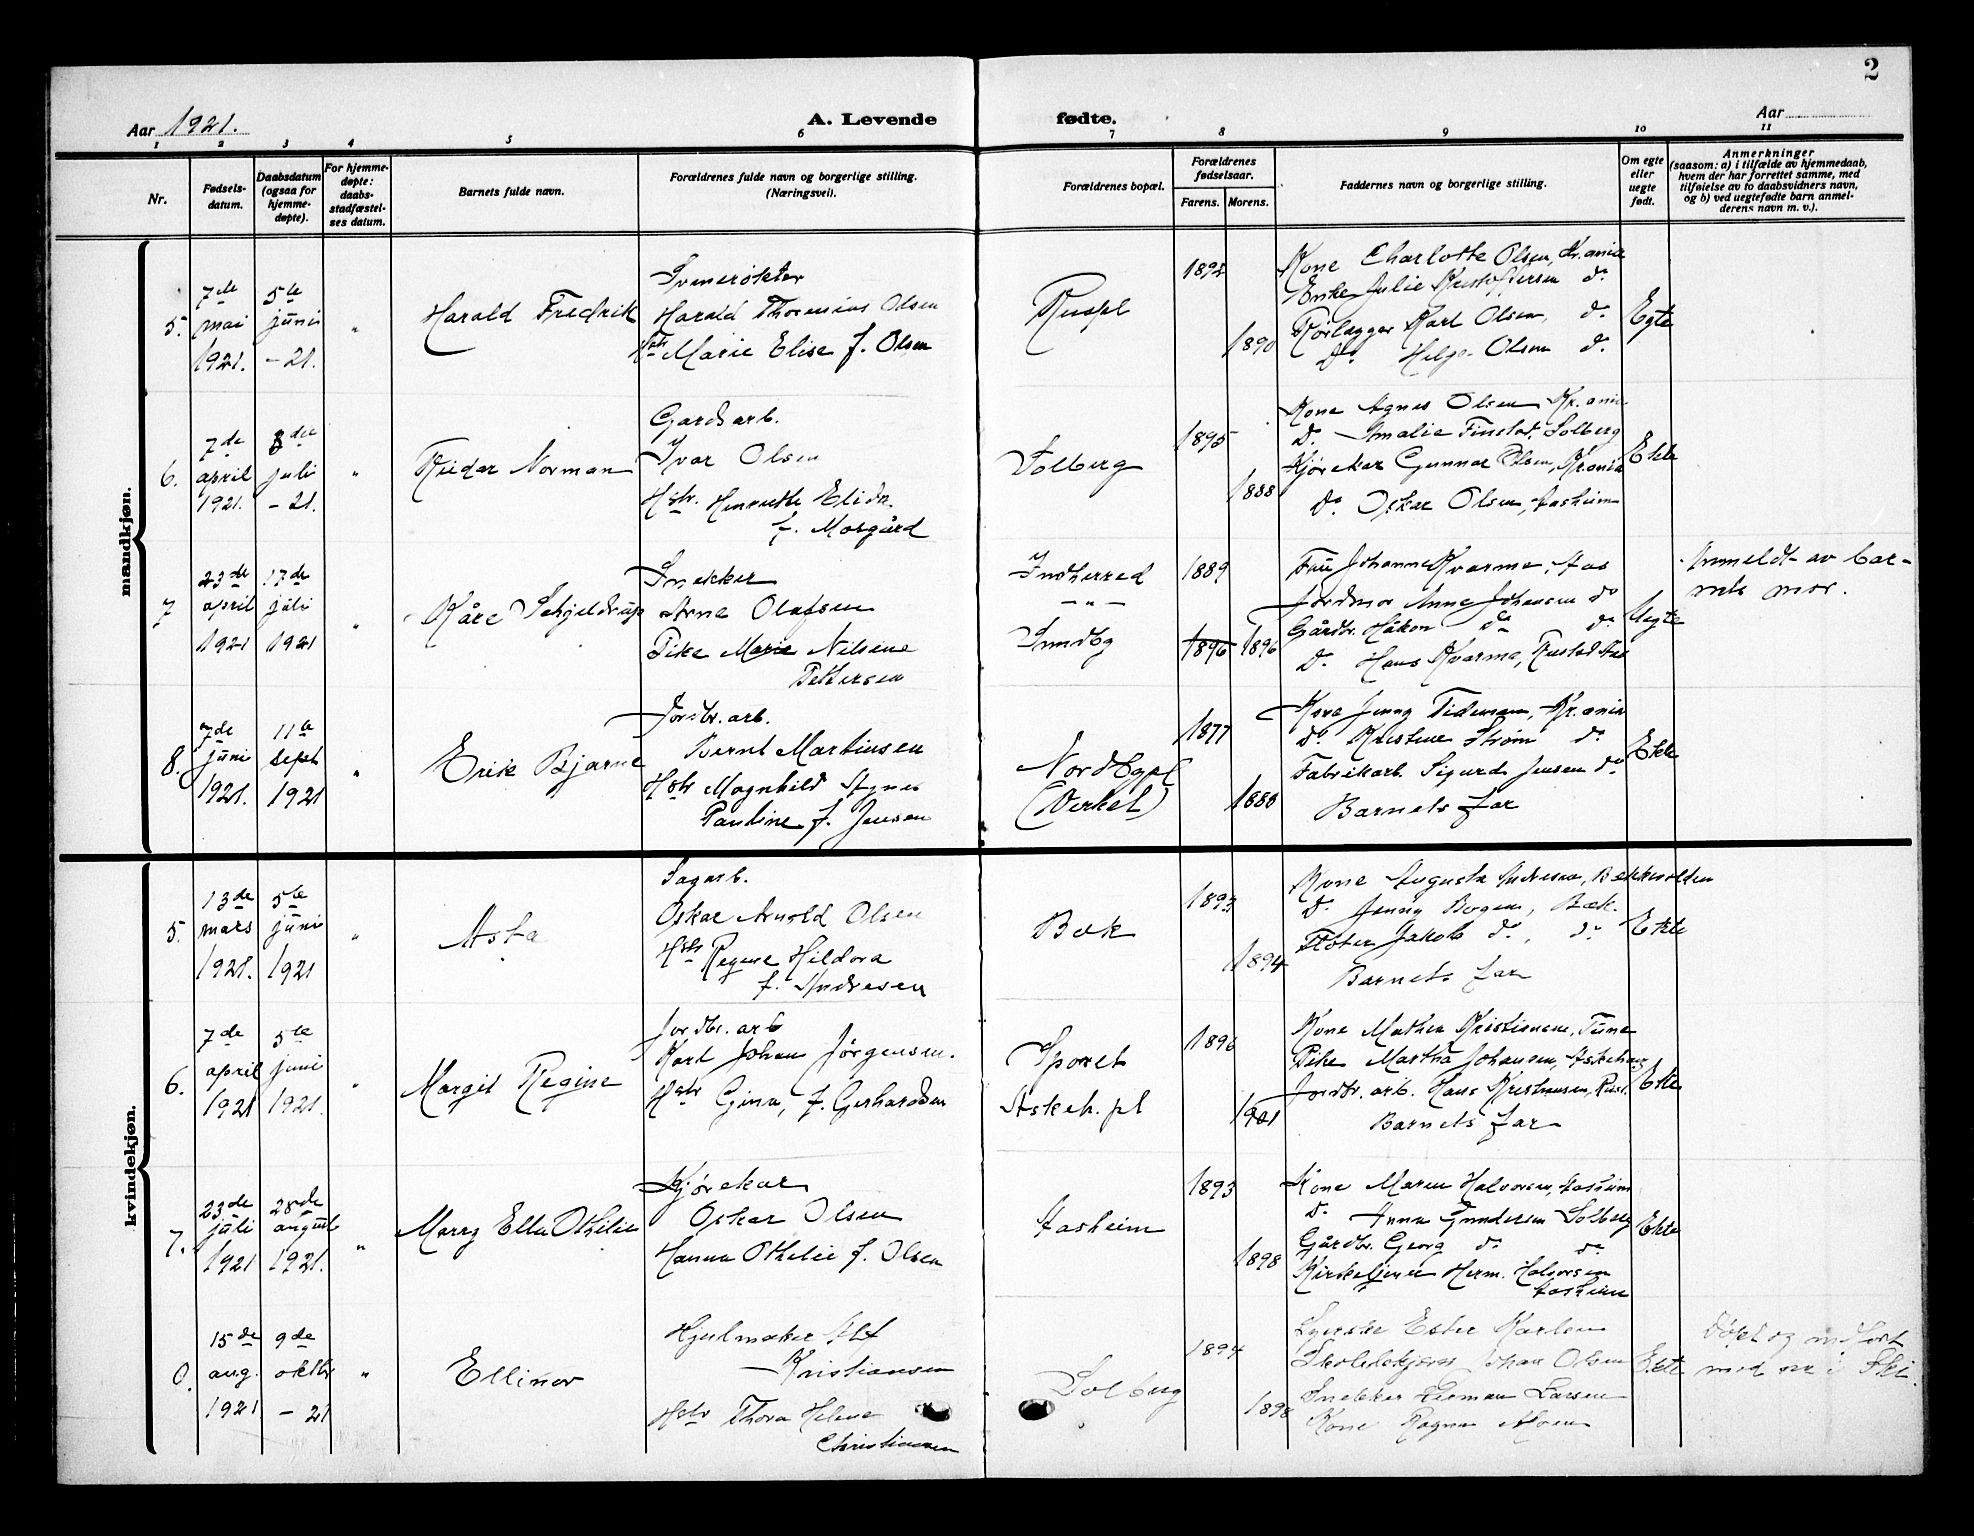 2
Aar 1921.
A. Levende fødte.
Aar
1 2 3 4 5 6 7 8 9 10 11
Nr.
Fødsels-
datum.
Daabsdatum
(ogsaa for
hjemme-
døpte).
For hjemme-
døpte:
daabs-
stadfæstel-
ses datum.
Barnets fulde navn.
Forældrenes fulde navn og borgerlige stilling.
(Næringsvei).
Forældrenes bopæl.
Forældrenes
fødselsaar.
Farens. Morens.
Faddernes navn og borgerlige stilling.
Om egte
eller
uegte
født.
Anmerkninger
(saasom: a) i tilfælde av hjemmedaab,
hvem der har forrettet samme, med
tilføielse av to daabsvidners navn,
og b) ved uegtefødte barn anmel-
derens navn m. v.).
mandkjøn.
5.
7de
mai
1921.
5te
juni
- 21.
"
Harald Fredrik
Harald Thorenius Olsen
Hstr Marie Elise f. Olsen
1890
Kone Charlotte Olsen, Kr.ania
Enke Julie Kristoffersen do
Rørlægger Karl Olsen, do
Do Helge Olsen do
Egte
6.
7de
april
1921.
3die
juli
- 21.
"
Reidar Norman
Gardsarb.
Ivar Olsen
Hstr.
f. Morgård
Solberg
1895
1888
Kone Agnes Olsen Kr.ania
Do Amalie Finstad, Solberg
Kjørekar Gunnar Olsen, Kr.ania
Do Oskar Olsen, Aasheim
Ekte
7
23de
april
1921
17de
juli
1921
"
Kåre Schjeldrup
Snekker
Arne Olafsen
Pike Marie Nilsine
Pettersen
Indherred
- " -
Sundby
1889
1896 1896
Fru Johanne Kvarme, Aas
Jordmor Anne Johansen do
Gårdbr. Håkon do do
Do Hans Kvarme, Rustad Aas
Uegte
Anmeldt av bar-
nets mor.
8.
7de
juni
1921.
11te
sept
1921
"
Erik Bjarne
Jordbr. arb.
Bernt Martinsen
Hstr Magnhild Agnes
Pauline f. Jensen
Nordbypl
(Verket)
1877
Kone Jenny Tidemann, Kr.ania
do Kristine Strøm do
Fabrikarb. Sigurd Jensen do
Barnets far
Ekte
kvindekjøn.
5.
13de
mars
1921.
5te
juni
1921
"
Asta
Sagarb.
Oskar Arnold Olsen
Hstr Regine Hildora
f. Andresen
Bæk
1893
1894
Kone Augusta Andresen, Bækkevolden
Do Jenny Bogen, Bæk.
Fløter Jakob do, do
Barnets far
Ekte
6.
7de
april
1921
5te
juni
1921.
"
Margit Regine
Jordbr. arb
Karl Johan Jørgensen.
Hstr Gina, f. Gerhardsen
Askeh. pl
1896
1901
Kone Mathea Kristiansen, Tune
Pike Martha Johansen,
Jordbr. arb. Hans Kristiansen,
Barnets far
Ekte
7.
23de
juli
1921
28de
august
1921.
"
Marry Ella Othilie
Kjørekar
Oskar Olsen
Hanna Othilie f. Olsen
Aasheim
1893
1898
Kone Maren Halvorsen, Aasheim
Do Anna Gundersen Solberg
Gårdbr. Georg do do
Kirketjener Herm. Halvorsen
Aasheim
Ekte
15de
aug.
1921
9de
oktbr
- 21
"
Ellinor
Hjulmaker Alf
Kristiansen
Hstr Thora Helene
Christiansen
Solberg
1894
1898
Ester Karlsen
Johan Olsen
Snekker Herman Larsen
Kone Ragna
Ekte
Døpt og indført
med nr i Ski.